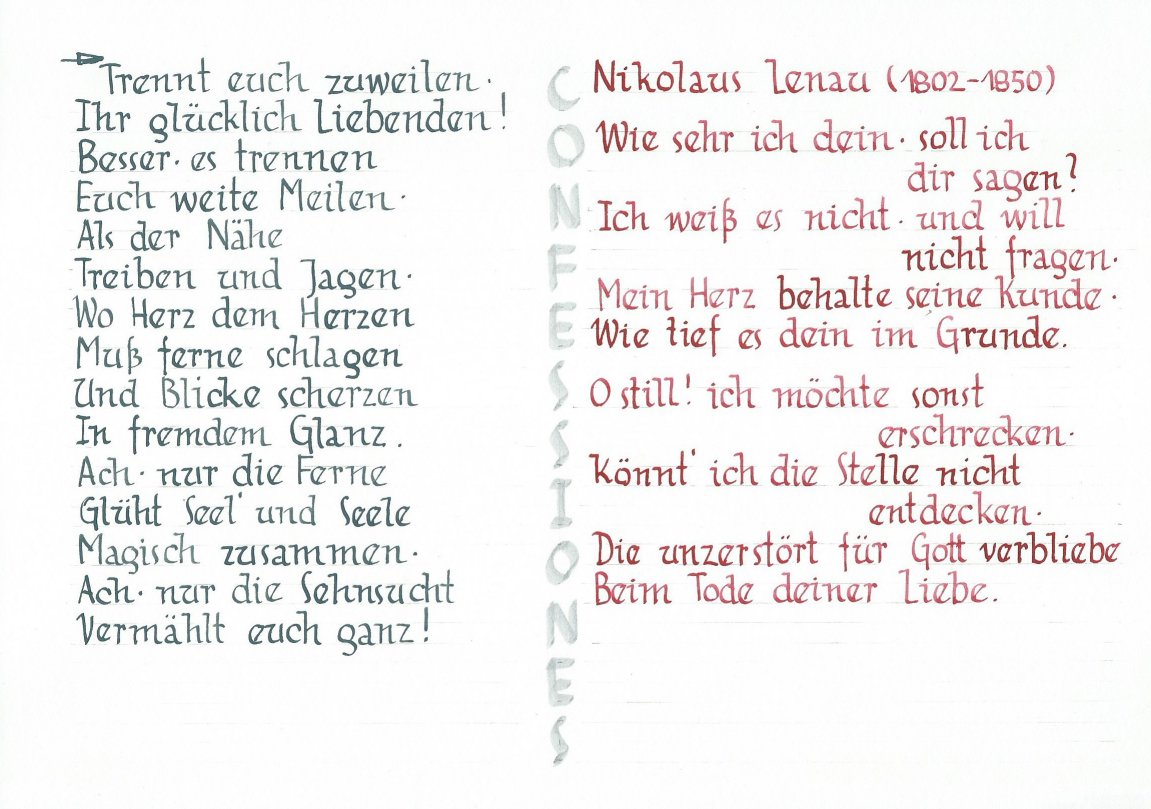 Trennt euch zuweilen·
Ihr glücklich Liebenden!
Besser· es trennen
Euch weite Meilen·
Als der Nähe
Treiben und Jagen·
Wo Herz dem Herzen
Muß ferne schlagen
Und Blicke scherzen
In fremdem Glanz.
Ach· nur die Ferne
Glüht Seel' und Seele
Magisch zusammen·
Ach· nur die Sehnsucht
Vermählt euch ganz!
CONFESSIONES
Nikolaus Lenau (1802-1850)
Wie sehr ich dein· soll ich
dir sagen?
Ich weiß es nicht· und will
nicht fragen·
Mein Herz behalte seine Kunde·
Wie tief es dein im Grunde.
O still! ich möchte sonst
erschrecken·
Könnt' ich die Stelle nicht
entdecken·
Die unzerstört für Gott verbliebe
Beim Tode deiner Liebe.